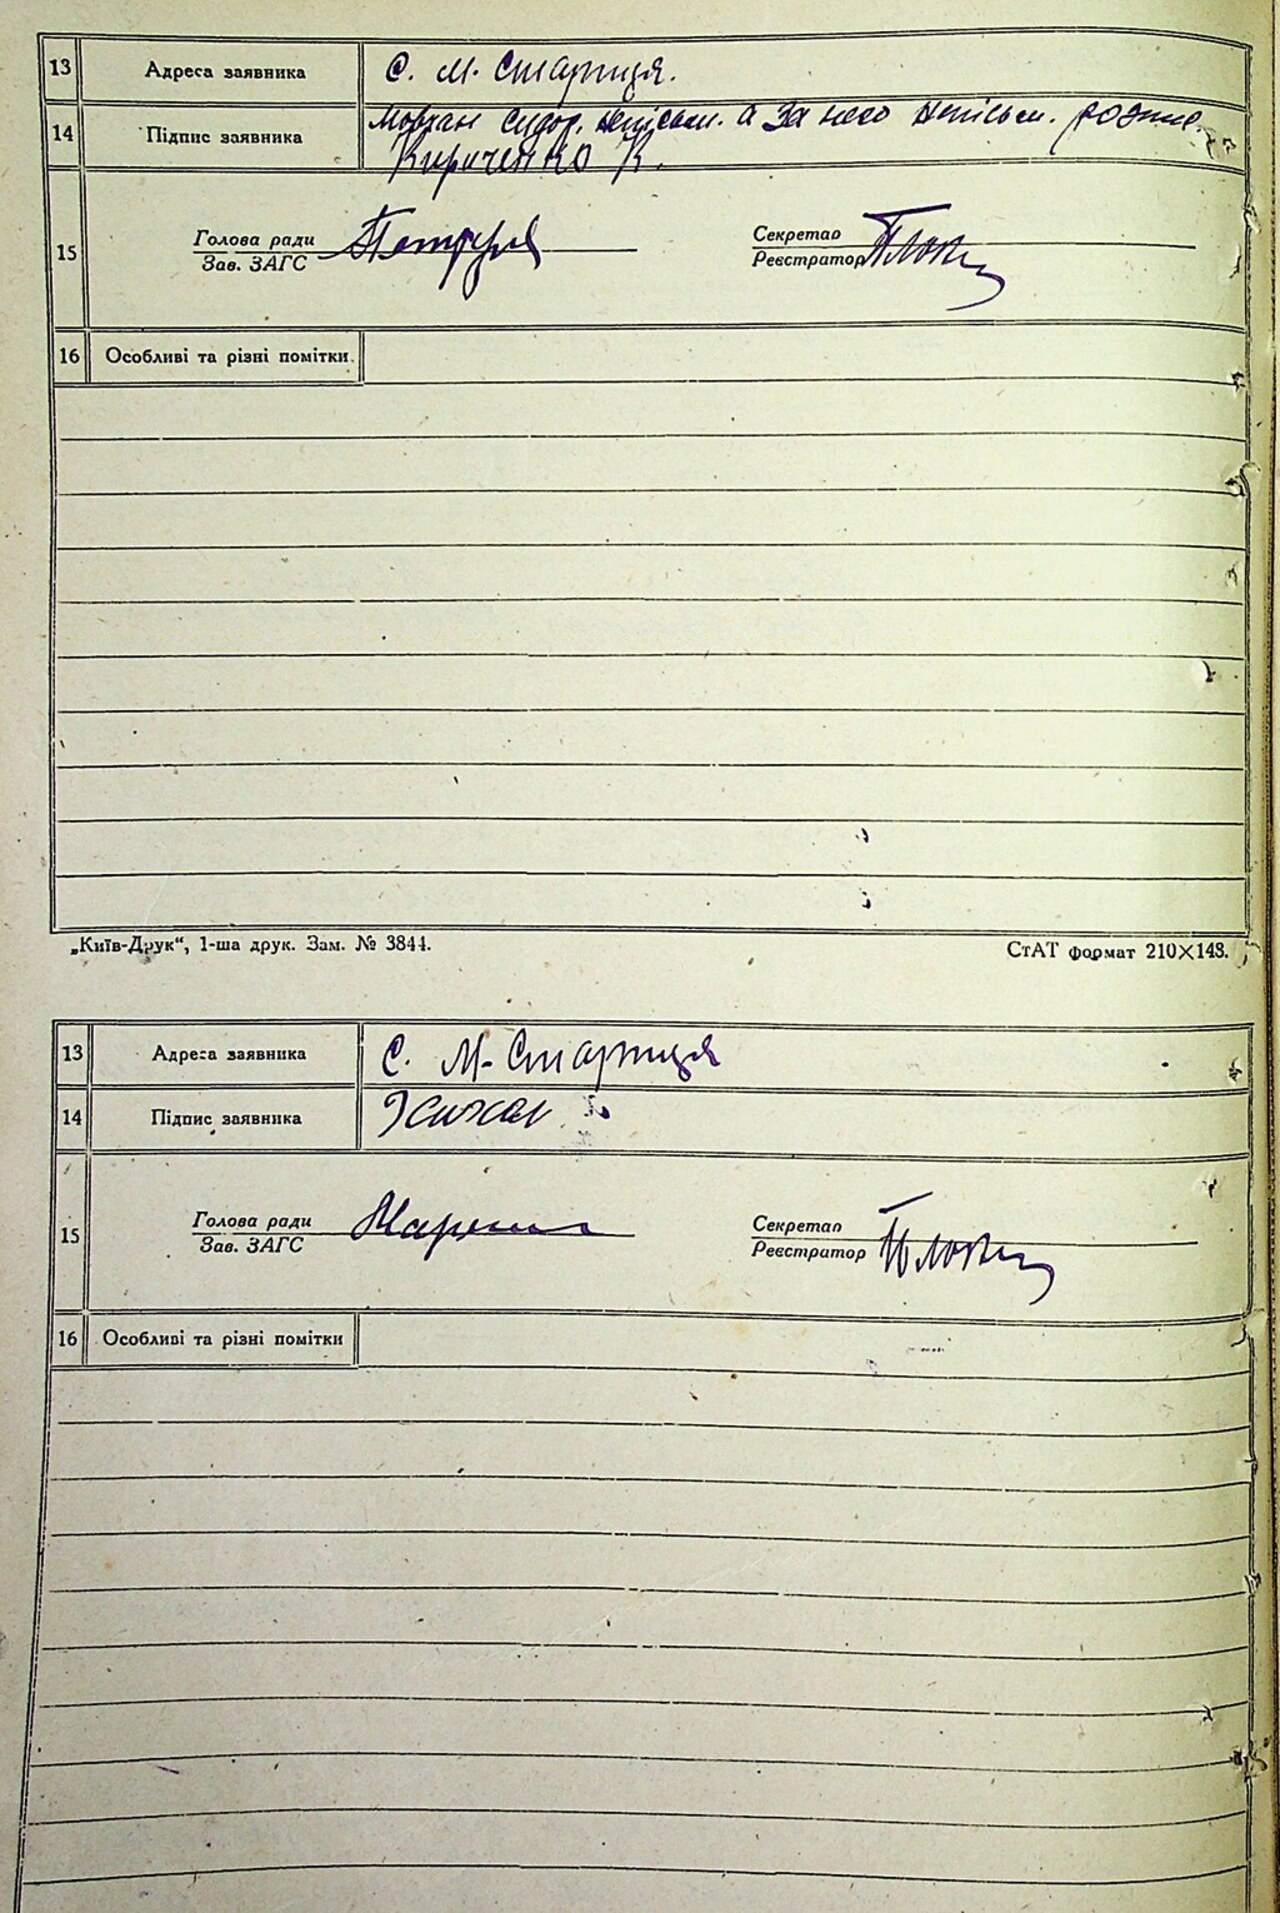 13 Адреса заявника С. М. Стариця.
14 Підпис заявника Мовчан Сидор. непісьм. а за него
Кириченко К.
15 Голова ради
Зав. ЗАГС
Секретар
Реєстратор
16 Особливі та різні помітки.
„Київ-Друк“, 1-ша друк. Зам. № 3844.
СтАТ формат 210×143.
13 Адреса заявника С. М-Стариця
14 Підпис заявника
15 Голова ради
Зав. ЗАГС
Секретар
Реєстратор
16 Особливі та різні помітки